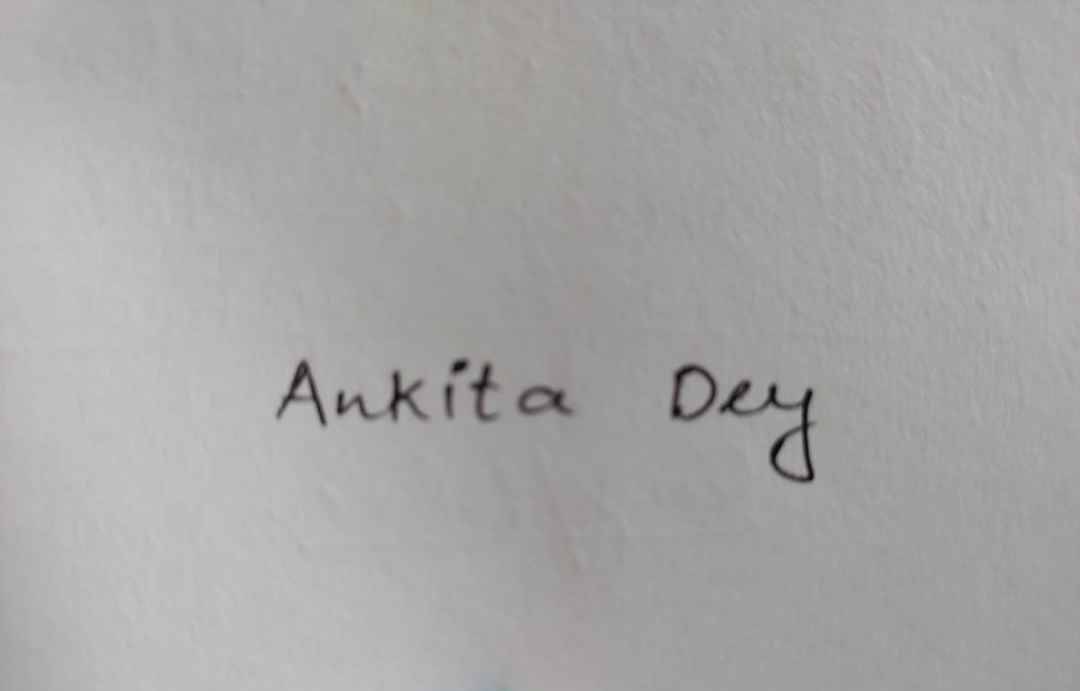 Ankita Dey